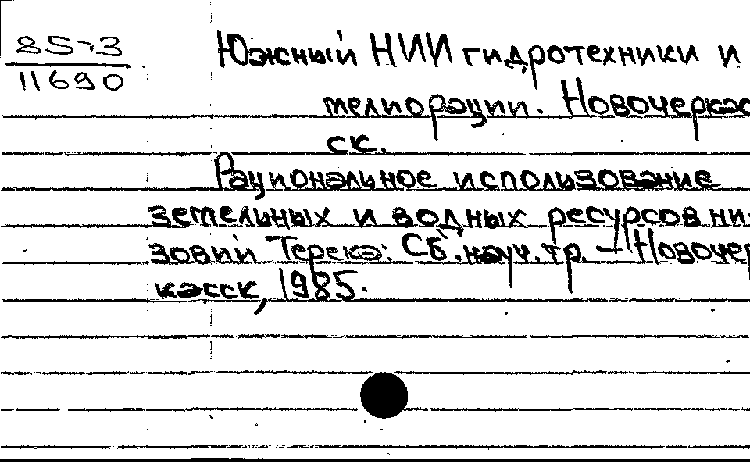 85-3
11690
Южный НИИ гидротехники и
мелиорации. Новочеркас
ск.
Рациональное использование
земельных и водных ресурсов ни
зовий Терека: Сб. науч. тр. – Новочер
касск, 1985.